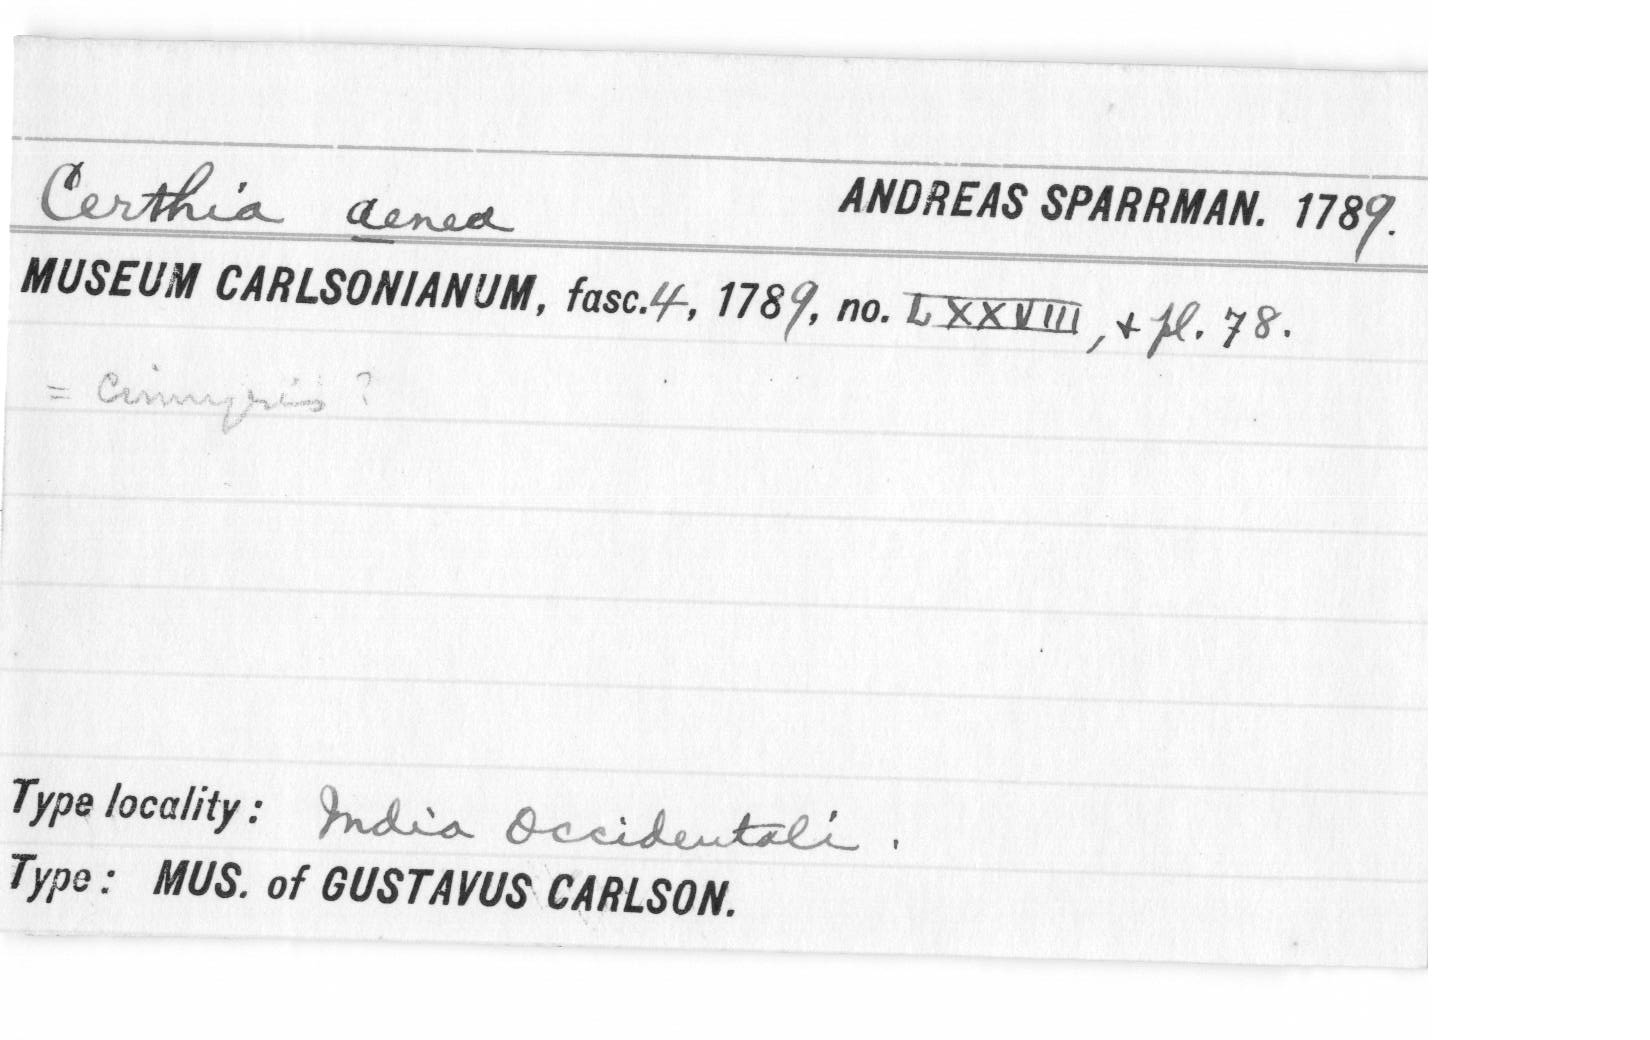 Certhia aenea ANDREAS SPARRMAN. 1789.
MUSEUM CARLSONIANUM, fasc. 4, 1789, no. LXXVIII, & pl. 78.
= Cinnyris ?
Type locality: India Occidentali.
Type: MUS. of GUSTAVUS CARLSON.